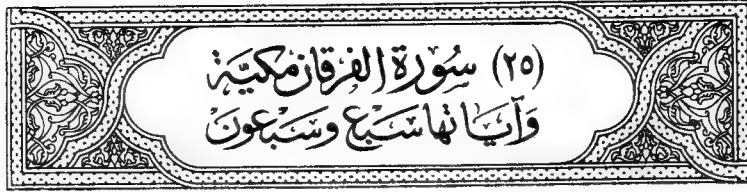 (٢٥) سُورَة الفرقان مكيَّة
وَآيَاتها سَبع وَسَبعونَ